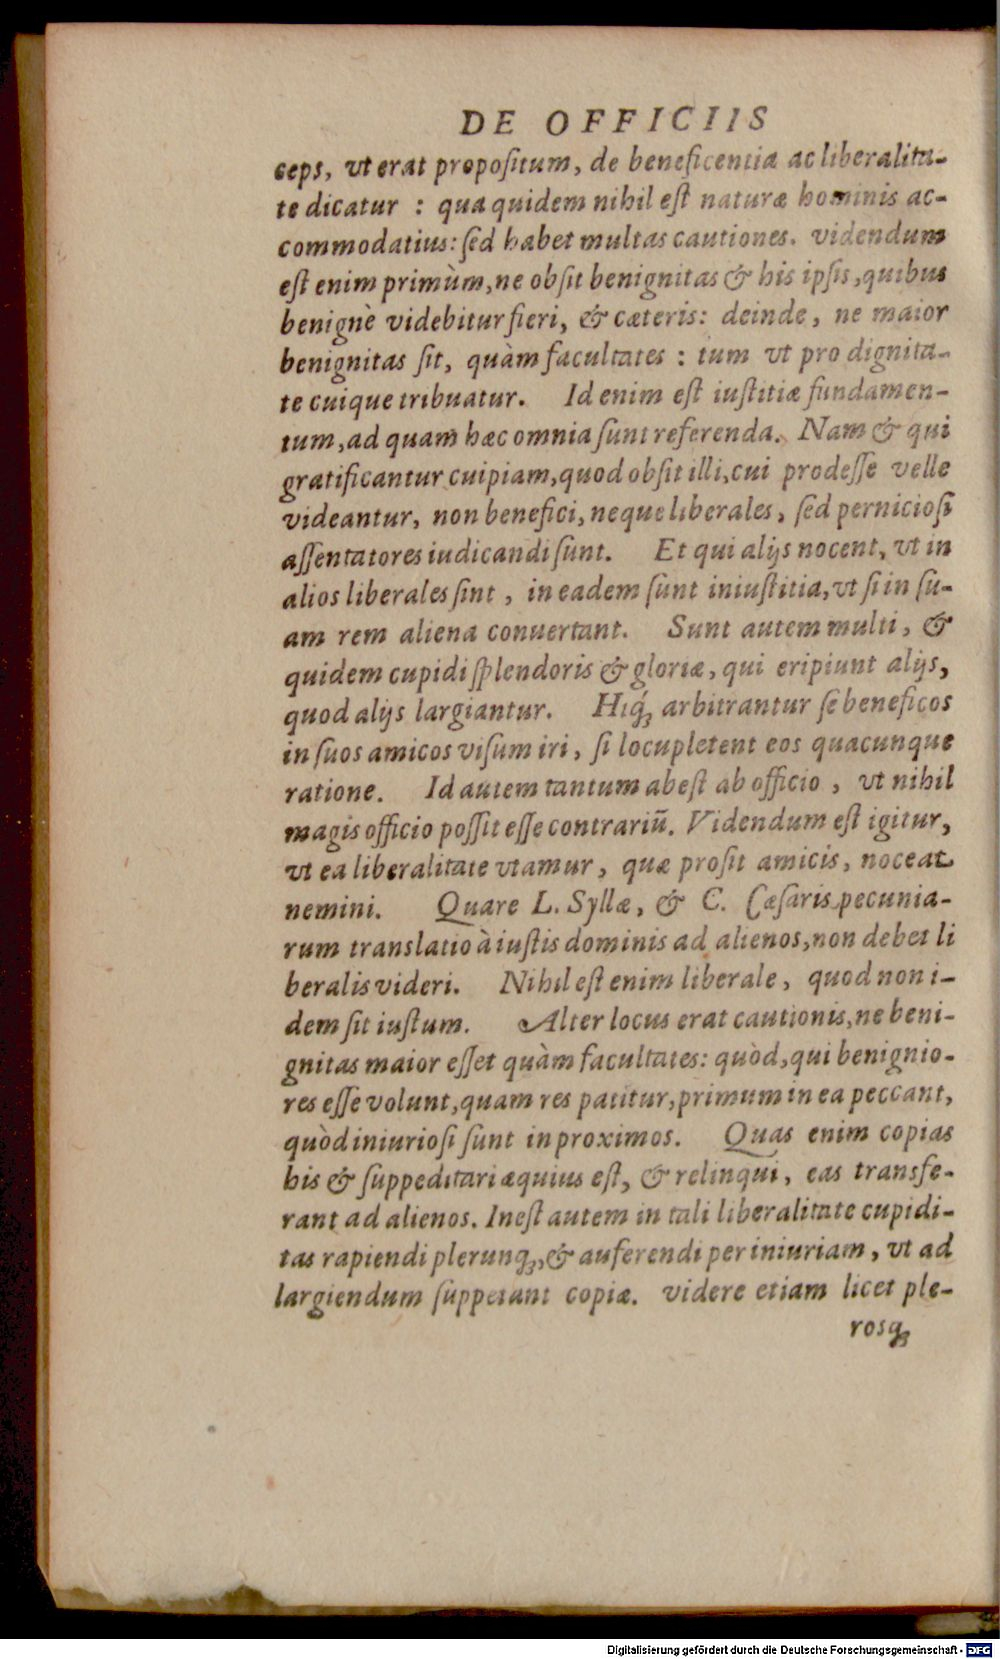 DE OFFICIIS
ceps, vt erat propoſitum, de beneficentia ac liberalita-
te dicatur : qua quidem nihil eſt naturæ hominis ac-
commodatius: ſed habet multas cautiones. videndum
eſt enim primùm, ne obſit benignitas & his ipſis, quibus
benignè videbitur fieri, & cæteris: deinde, ne maior
benignitas ſit, quàm facultates : tum vt pro dignita-
te cuique tribuatur. Id enim eſt iuſtitiæ fundamen-
tum, ad quam hæc omnia ſunt referenda. Nam & qui
gratificantur cuipiam, quod obſit illi, cui prodeſſe velle
videantur, non benefici, neque liberales, ſed pernicioſi
aſſentatores iudicandi ſunt. Et qui alijs nocent, vt in
alios liberales ſint, in eadem ſunt iniuſtitia, vt ſi in ſu-
am rem aliena conuertant. Sunt autem multi, &
quidem cupidi ſplendoris & gloriæ, qui eripiunt alijs,
quod alijs largiantur. Hiq́ꝫ arbitrantur ſe beneficos
in ſuos amicos viſum iri, ſi locupletent eos quacunque
ratione. Id autem tantum abeſt ab officio, vt nihil
magis officio poſſit eſſe contrariũ. Videndum eſt igitur,
vt ea liberalitate vtamur, quæ proſit amicis, noceat
nemini. Quare L. Syllæ, & C. Cæſaris pecunia-
rum translatio à iuſtis dominis ad alienos, non debet li
beralis videri. Nihil eſt enim liberale, quod non i-
dem ſit iuſtum. Alter locus erat cautionis, ne beni-
gnitas maior eſſet quàm facultates: quòd, qui benignio-
res eſſe volunt, quam res patitur, primum in ea peccant,
quòd iniurioſi ſunt in proximos. Quas enim copias
his & ſuppeditari æquius eſt, & relinqui, eas transfe-
rant ad alienos. Ineſt autem in tali liberalitate cupidi-
tas rapiendi plerunqꝫ, & auferendi per iniuriam, vt ad
largiendum ſuppetant copiæ. videre etiam licet ple-
rosqꝫ
Digitalisierung gefördert durch die Deutsche Forschungsgemeinschaft - DFG